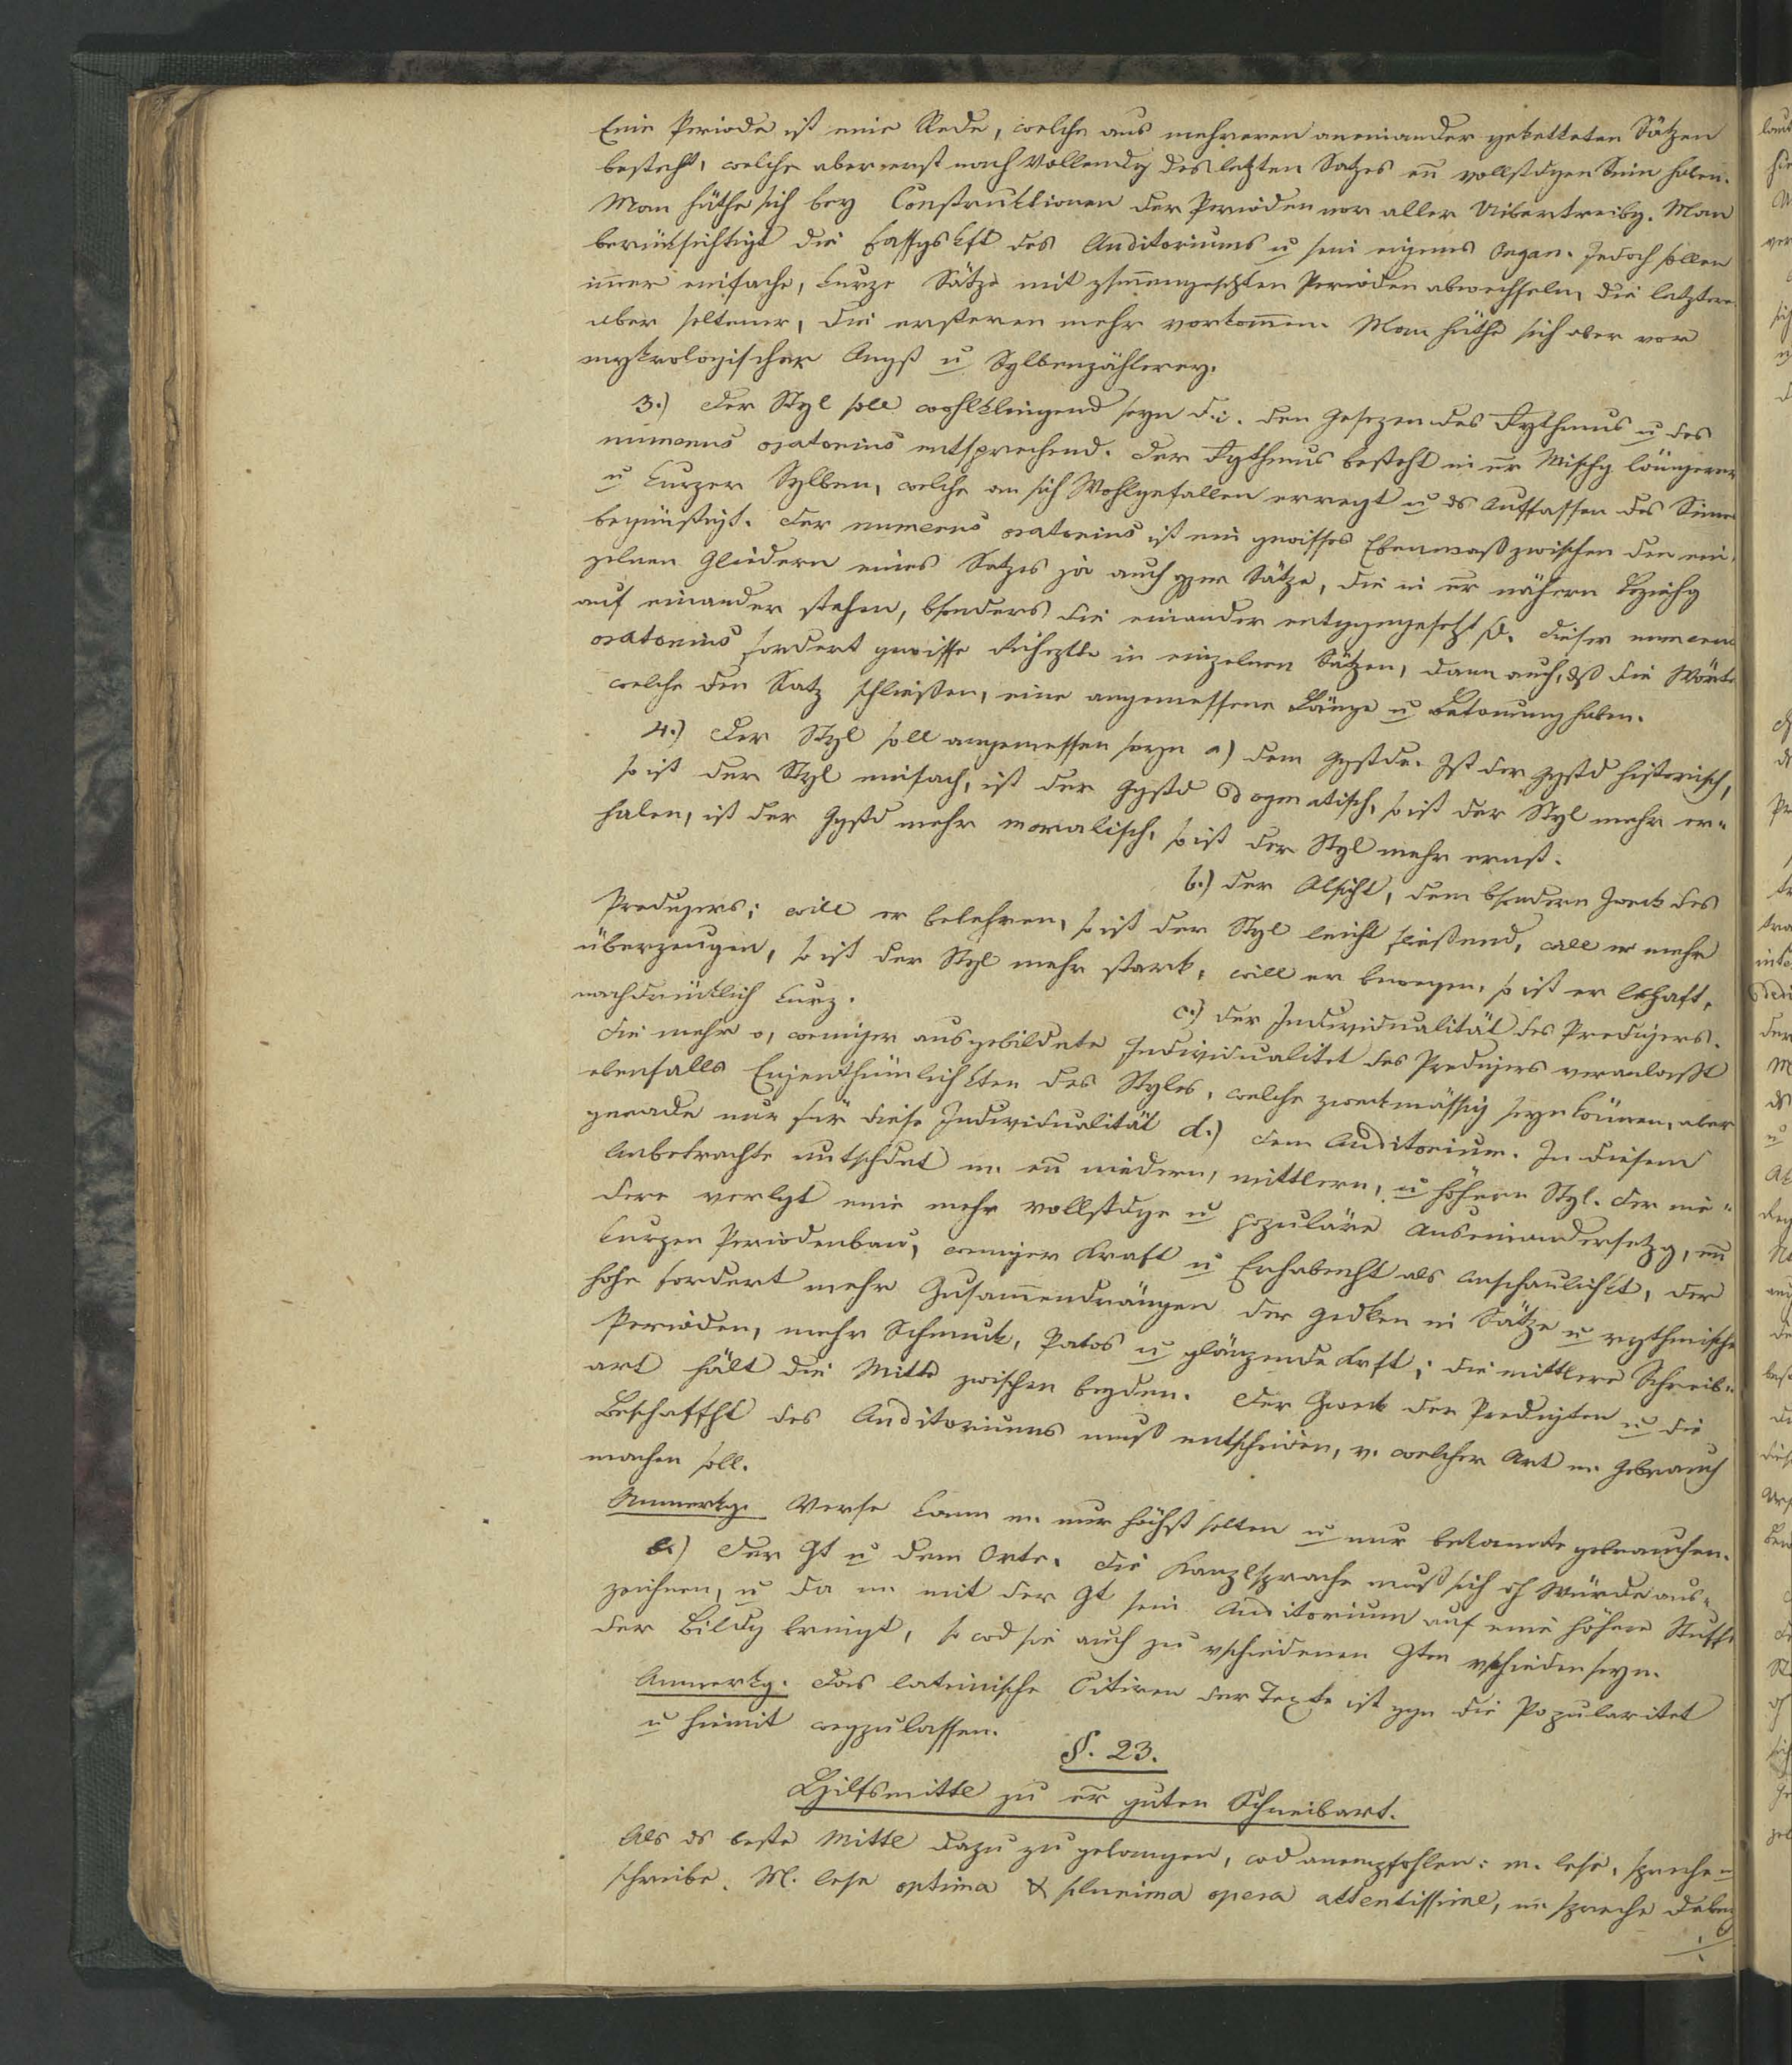 Eine Periode ist eine Rede, welche aus mehreren aneinander geketteten Sätzen
besteht, welche aber erst nach Vollendg des letzten Satzes en̄ vollstdgen Sinn haben.
Man hüthe sich bey Construktionen der Perioden vor aller Uibertreibg. Man
berüksichtigt die Fassgskft des Auditoriums u sein eigenes Organ. Jedoch sollen
im̄er einfache, kurze Sätze mit zsm̄engesetzten Perioden abwechseln, die letztere
aber seltener, die ersteren mehr vorkom̄en. Man hüthe sich aber vor
mykrologischer Angst u Sylbenzählerey.
3.) Der Styl soll wohlklingend seyn d.i. den Gesezen des Rythmus u des
numerus oratorius entsprechend. Der Rythmus besteht in er̄ Mischg längerer
u kurzer Sylben, welche an sich Wohlgefallen erregt u ds Auffassen des Sinnes
begünstigt. Der numerus oratorius ist ein gewisses Ebenmaß zwischen den ein-
zelnen Gliedern eines Satzes ja auch gzer Sätze, die in er̄ nähern Beziehg
auf einander stehen, bsonders die einander entgegengesetzt sd. Dieser numerus
oratorius fordert gewisse in einzelnen Sätzen, dann auch, dß die Wörter
welche den Satz schließen, eine angemessene Länge u Betonung haben.
4.) Der Styl soll angemessen seyn a) dem Ggstde. Ist der Ggstd historisch,
so ist der Styl einfach, ist der Ggstd dogmatisch, so ist der Styl mehr er-
haben, ist der Ggstd mehr moralisch, so ist der Styl mehr ernst.
b.) der Absicht, dem bsondern Zweck des
Predigers; will er belehren, so ist der Styl leicht fließend, will er mehr
überzeugen, so ist der Styl mehr stark, will er bewegen, so ist er lebhaft,
nachdrüklich kurz.
c.) der Individualität des Predigers.
Die mehr o, weniger ausgebildete Individualitet des Predigers veranlaßt
ebenfalls Eigenthümlichkten des Styles, welche zweckmässig seyn können, aber
gerade nur für diese Individualität d.) dem Auditorium. In diesem
Anbetrachte utschdet m. en̄ niedern, mittlern, u höhern Styl. Der nie-
dere verlgt eine mehr vollstdge u populäre Auseinandersetzg, en̄
kurzen Periodenbau, weniger Kraft u Erhabenht als Anschaulichkt, der
hohe fordert mehr Zusam̄endrängen der Gedken in Sätze u rythmische
Perioden, mehr Schmuck, Patos u glänzende Krft; die mittlere Schreib-
art hält die Mitte zwischen beyden. Der Zweck der Predigten u die
Beschaffht des Auditoriums muß entscheiden, v. welcher Art m. Gebrauch
machen soll.
Anmerkg. Verse kann m. nur höchst selten u nur bekannte gebrauchen.
e.) Der Zt u dem Orte. Die Kanzlsprache muß sich dch Würde aus-
zeichnen, u da m. mit der Zt sein Auditorium auf eine höhere Stuffe
der Bildg bringt, so wd sie auch zu vschiedenen Zten vschieden seyn.
Anmerkg. Das lateinische Citiren der Texte ist ggn die Popularitet
u hiemit wegzulassen.
§. 23.
Hilfsmittl zu er̄ guten Schreibart.
Als ds beste Mittl dazu zu gelangen, wd anempfohlen: m. lese, spreche u
schreibe. M. lese optima & plurima opera attentissime, m. spreche dabey